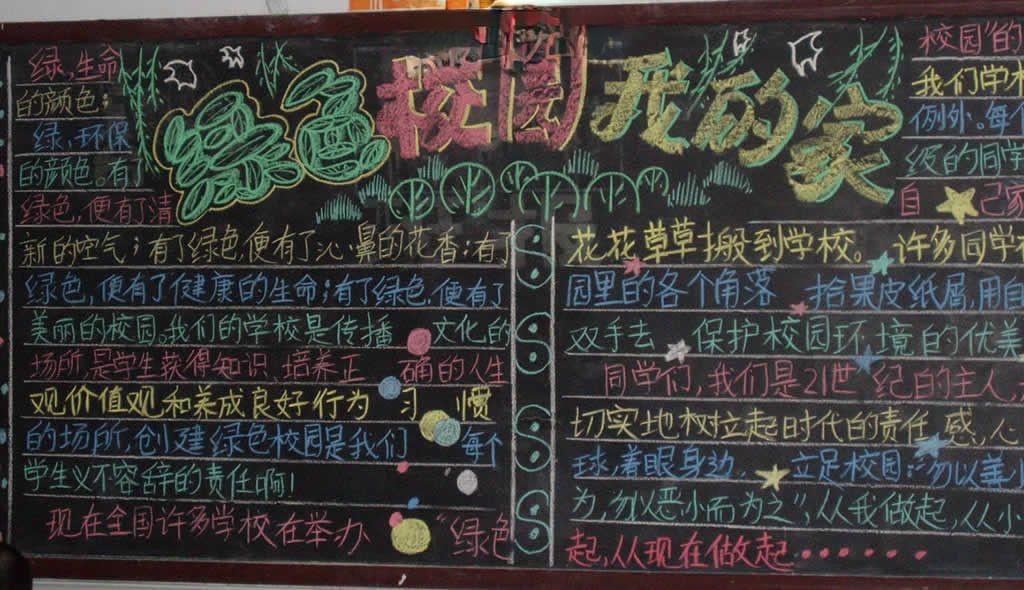 绿色校园我的家
绿,生命
的颜色;
绿,环保
的颜色。有了
绿色,便有了清
新的空气;有了绿色,便有了沁鼻的花香;有了
绿色,便有了健康的生命;有了绿色,便有了
美丽的校园。我们的学校是传播 文化的
场所,是学生获得知识、培养正 确的人生
观价值观和养成良好行为 习 惯
的场所,创建绿色校园是我们 每个
学生义不容辞的责任啊!
现在全国许多学校在举办 “绿色
校园”的
我们学校
例外。每个
级的同学
自 己家
花花草草搬到学校。许多同学
园里的各个角落 拾果皮纸屑,用自
双手去 保护校园环境的优美
同学们,我们是21世 纪的主人,
切实地树立起时代的责任 感,心
球,着眼身边, 立足校园:“勿以善小
为,勿以恶小而为之”,从我做起,从小
起,从现在做起……